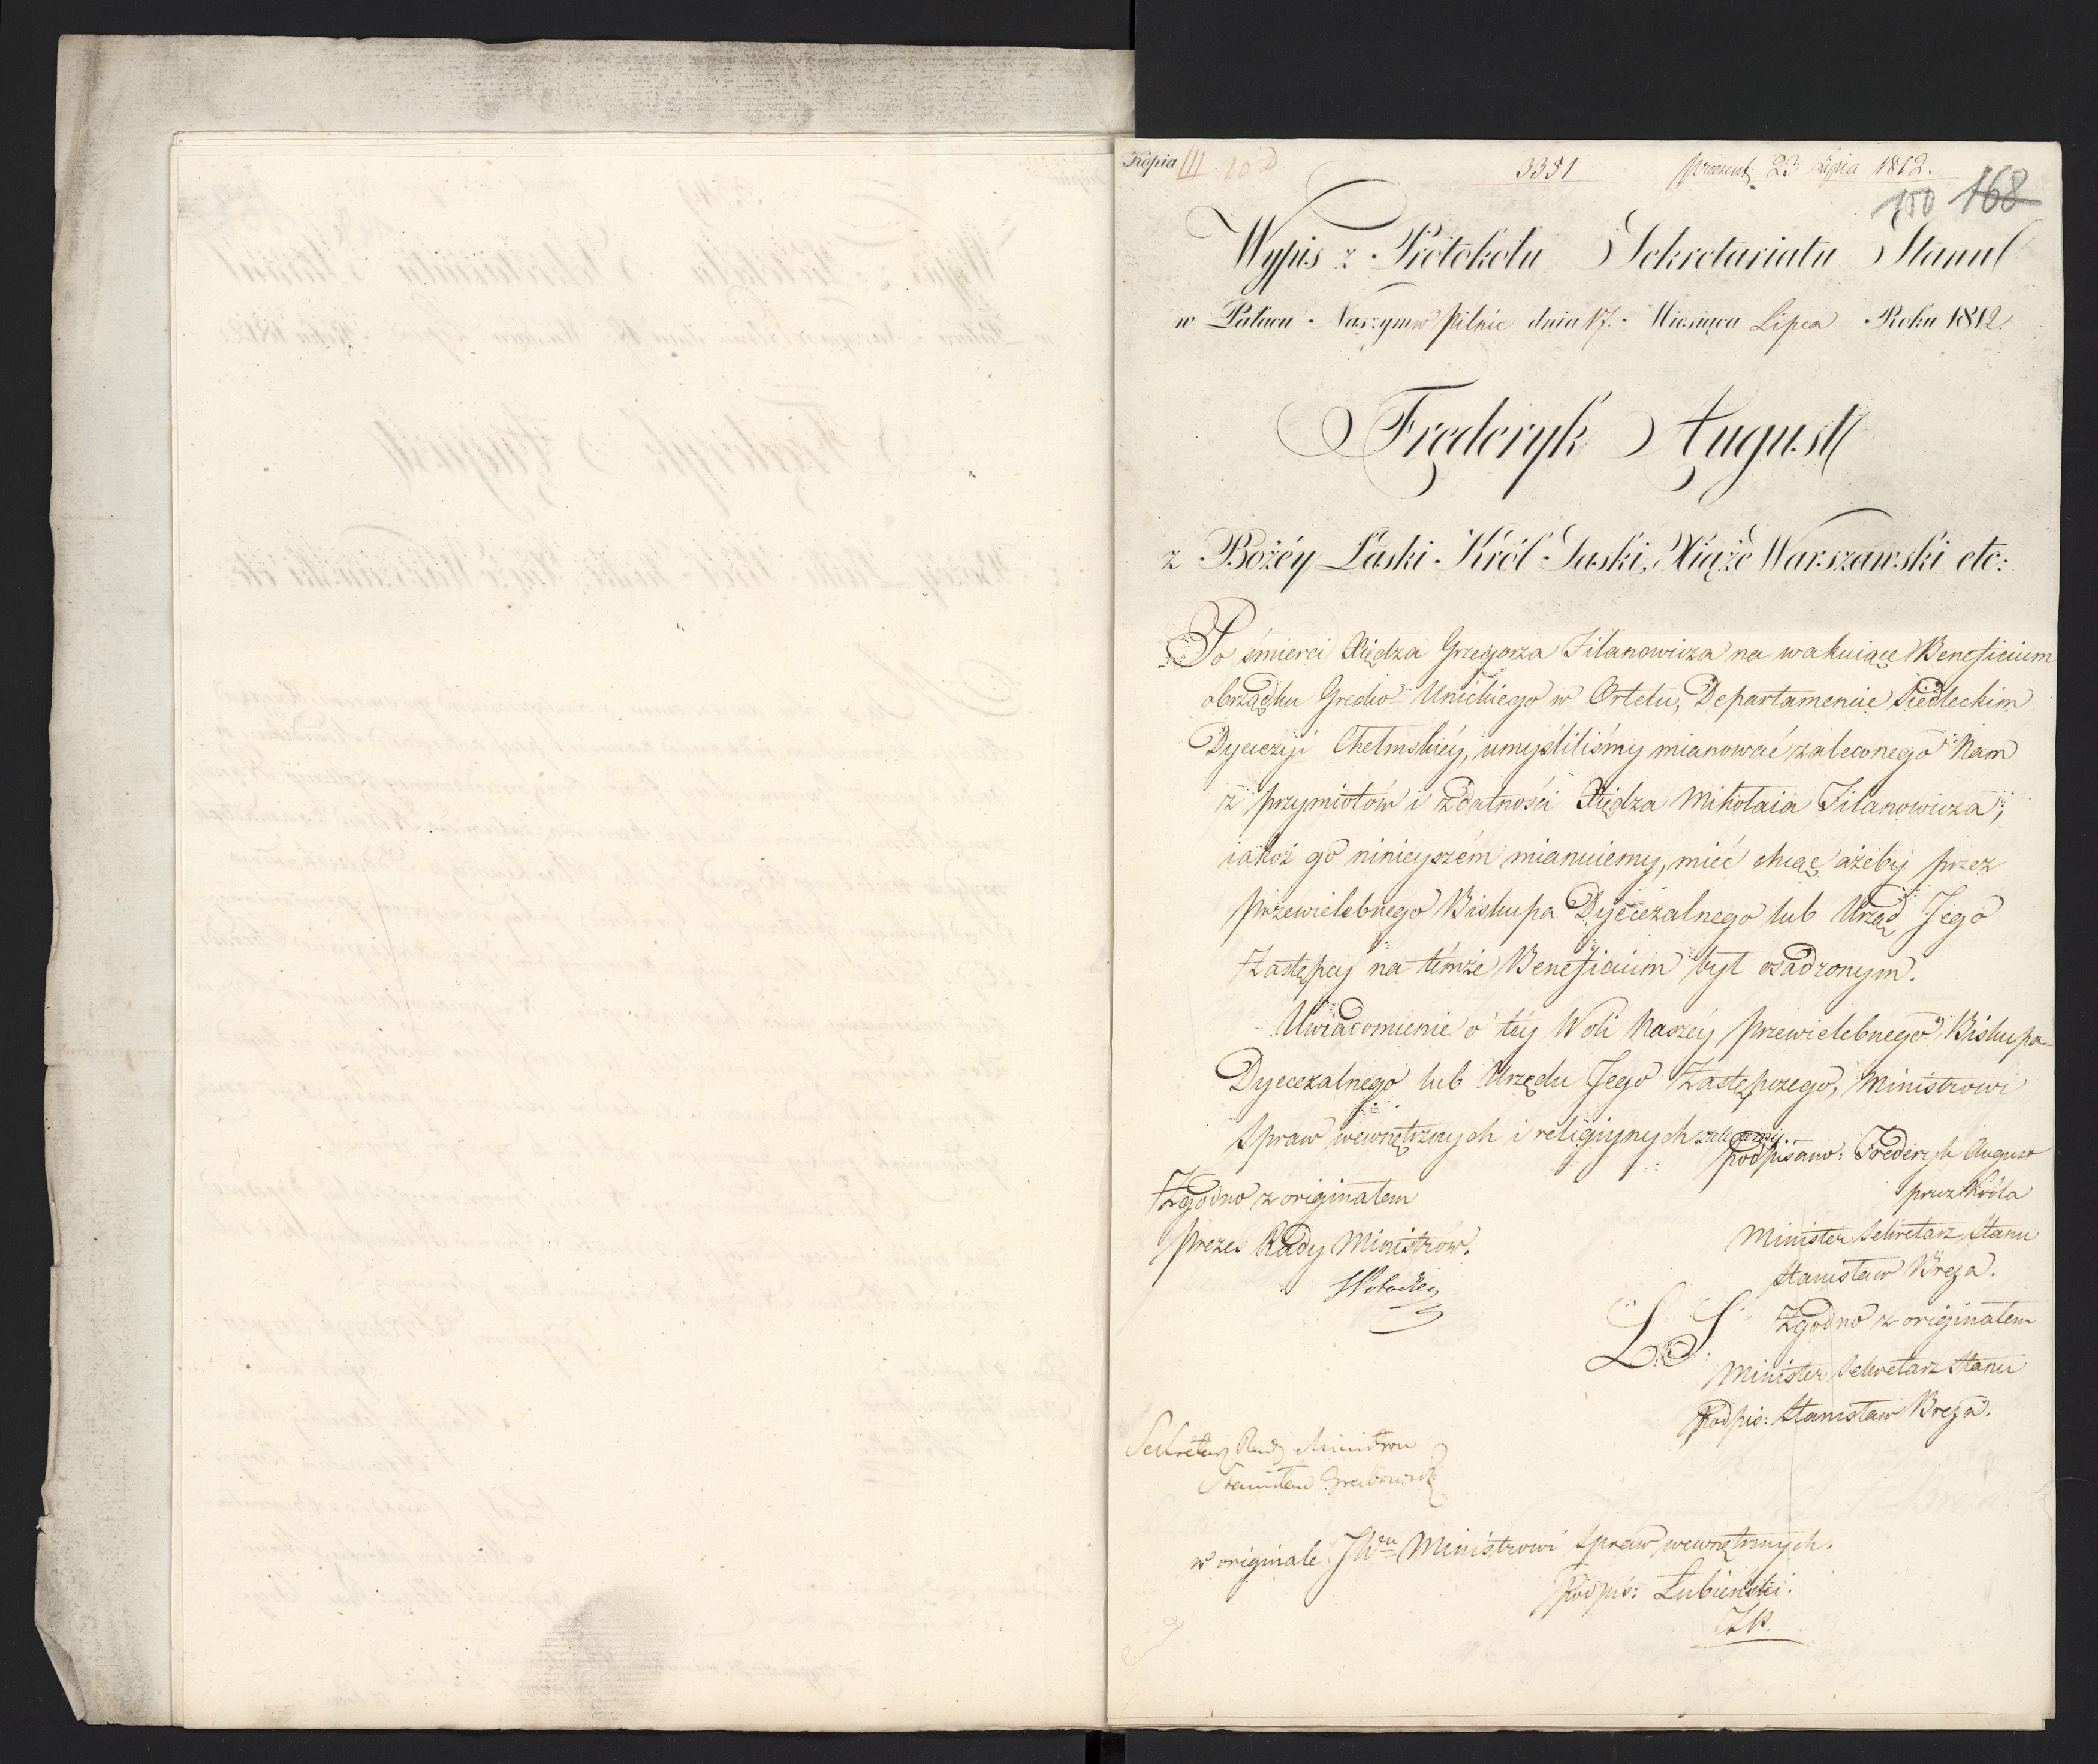 Kopia III 10 d. 3351 prezent. 23 Lipca 1812.
150 168
Wypis z Protokołu Sekretariatu Stanu
w Pałacu Naszym w Pilnic dnia 17. Miesiąca Lipca Roku 1812.
Fryderyk August
z Bożéy Łaski Król Saski, Xiąże Warszawski etc:
Po śmierci Xiędza Grzegorza Filanowicza na wakuiące Beneficium
obrządku Grecko-Unickiego w Ortelu, Departamencie Siedleckim
Dyecezyi Chełmskiéy, umyśliliśmy mianować zaleconego Nam
z przymiotów i zdatności Xiędza Mikołaia Filanowicza;
iakoż go ninieyszém mianuiemy, mieć chcąc ażeby przez
Przewielebnego Biskupa Dyecezalnego lub Urząd Jego
Zastępcy na témże Beneficium był osadzonym.
Uwiadomienie o téy Woli Naszéy Przewielebnego Biskupa
Dyecezalnego lub Urzędu Jego Zastępczego, Ministrowi
Spraw wewnętrznych i religiynych zalecamy.
podpisano: Frederyk August
Zgodno z originałem
przez Króla
Prezes Rady Ministrów.
Minister Sekretarz Stanu
Stanisław Breza.
L. S. Zgodno z originałem
Minister Sekretarz Stanu
Podpis: Stanisław Breza.
Sekretarz Rady Ministrów
Stanisław Grabowski
w originale JWu Ministrowi Spraw wewnętrznych.
Podpis: Łubieński.